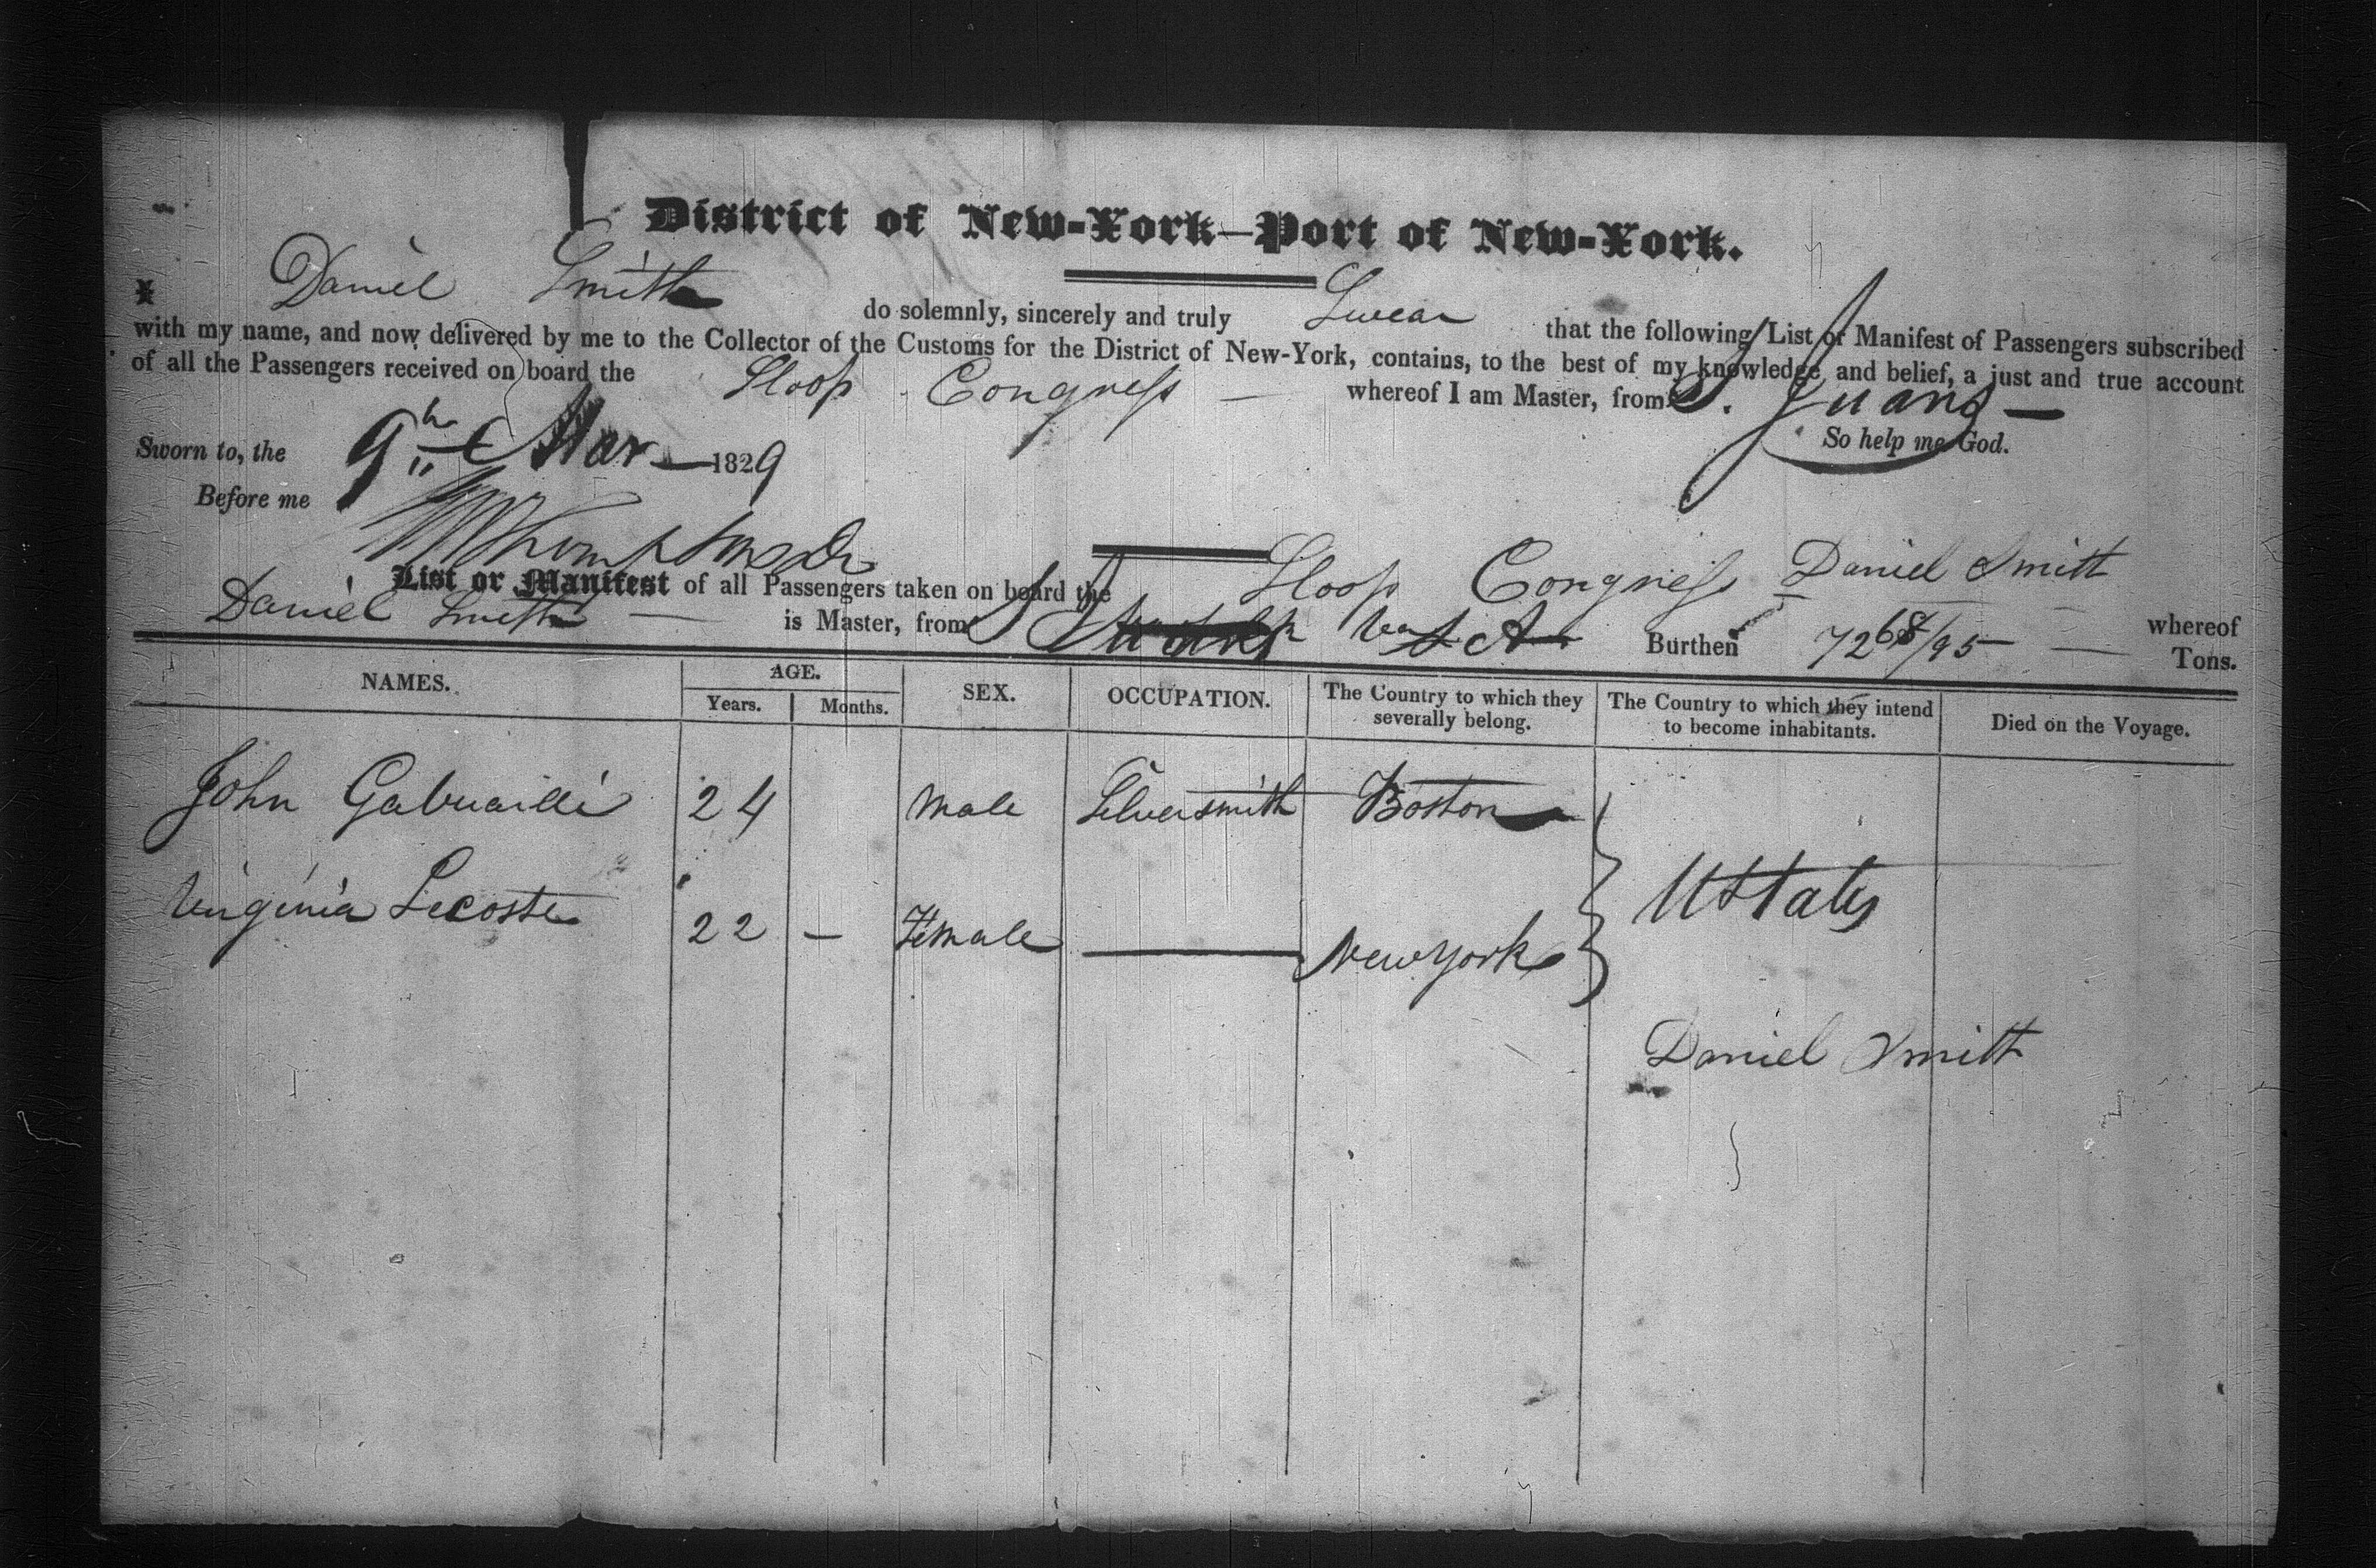 District of New-York—Port of New-York.
I Daniel Smith do solemnly, sincerely and truly Swear that the following List or Manifest of Passengers subscribed
with my name, and now delivered by me to the Collector of the Customs for the District of New-York, contains, to the best of my knowledge and belief, a just and true account
of all the Passengers received on board the Sloop Congress — whereof I am Master, from S. Juans —
So help me God.
Sworn to, the 9th Mar — 1829
Before me
Daniel Smith
List or Manifest of all Passengers taken on board the Sloop Congress whereof
Daniel Smith — is Master, from Burthen 72 68/95 — Tons.
NAMES. AGE. Years. Months. SEX. OCCUPATION. The Country to which they severally belong. The Country to which they intend to become inhabitants. Died on the Voyage.
John 24 Male Silversmith Boston
U States
Virginia Lecoste 22 — Female — New York
Daniel Smith